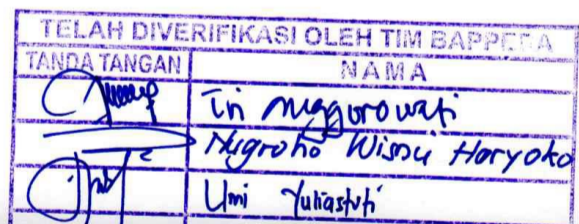 TELAH DIVERIFIKASI OLEH TIM BAPPEDA
TANDA TANGAN NAMA
Tri
Nugroho Wisnu Haryoko
Umi Yuliastuti